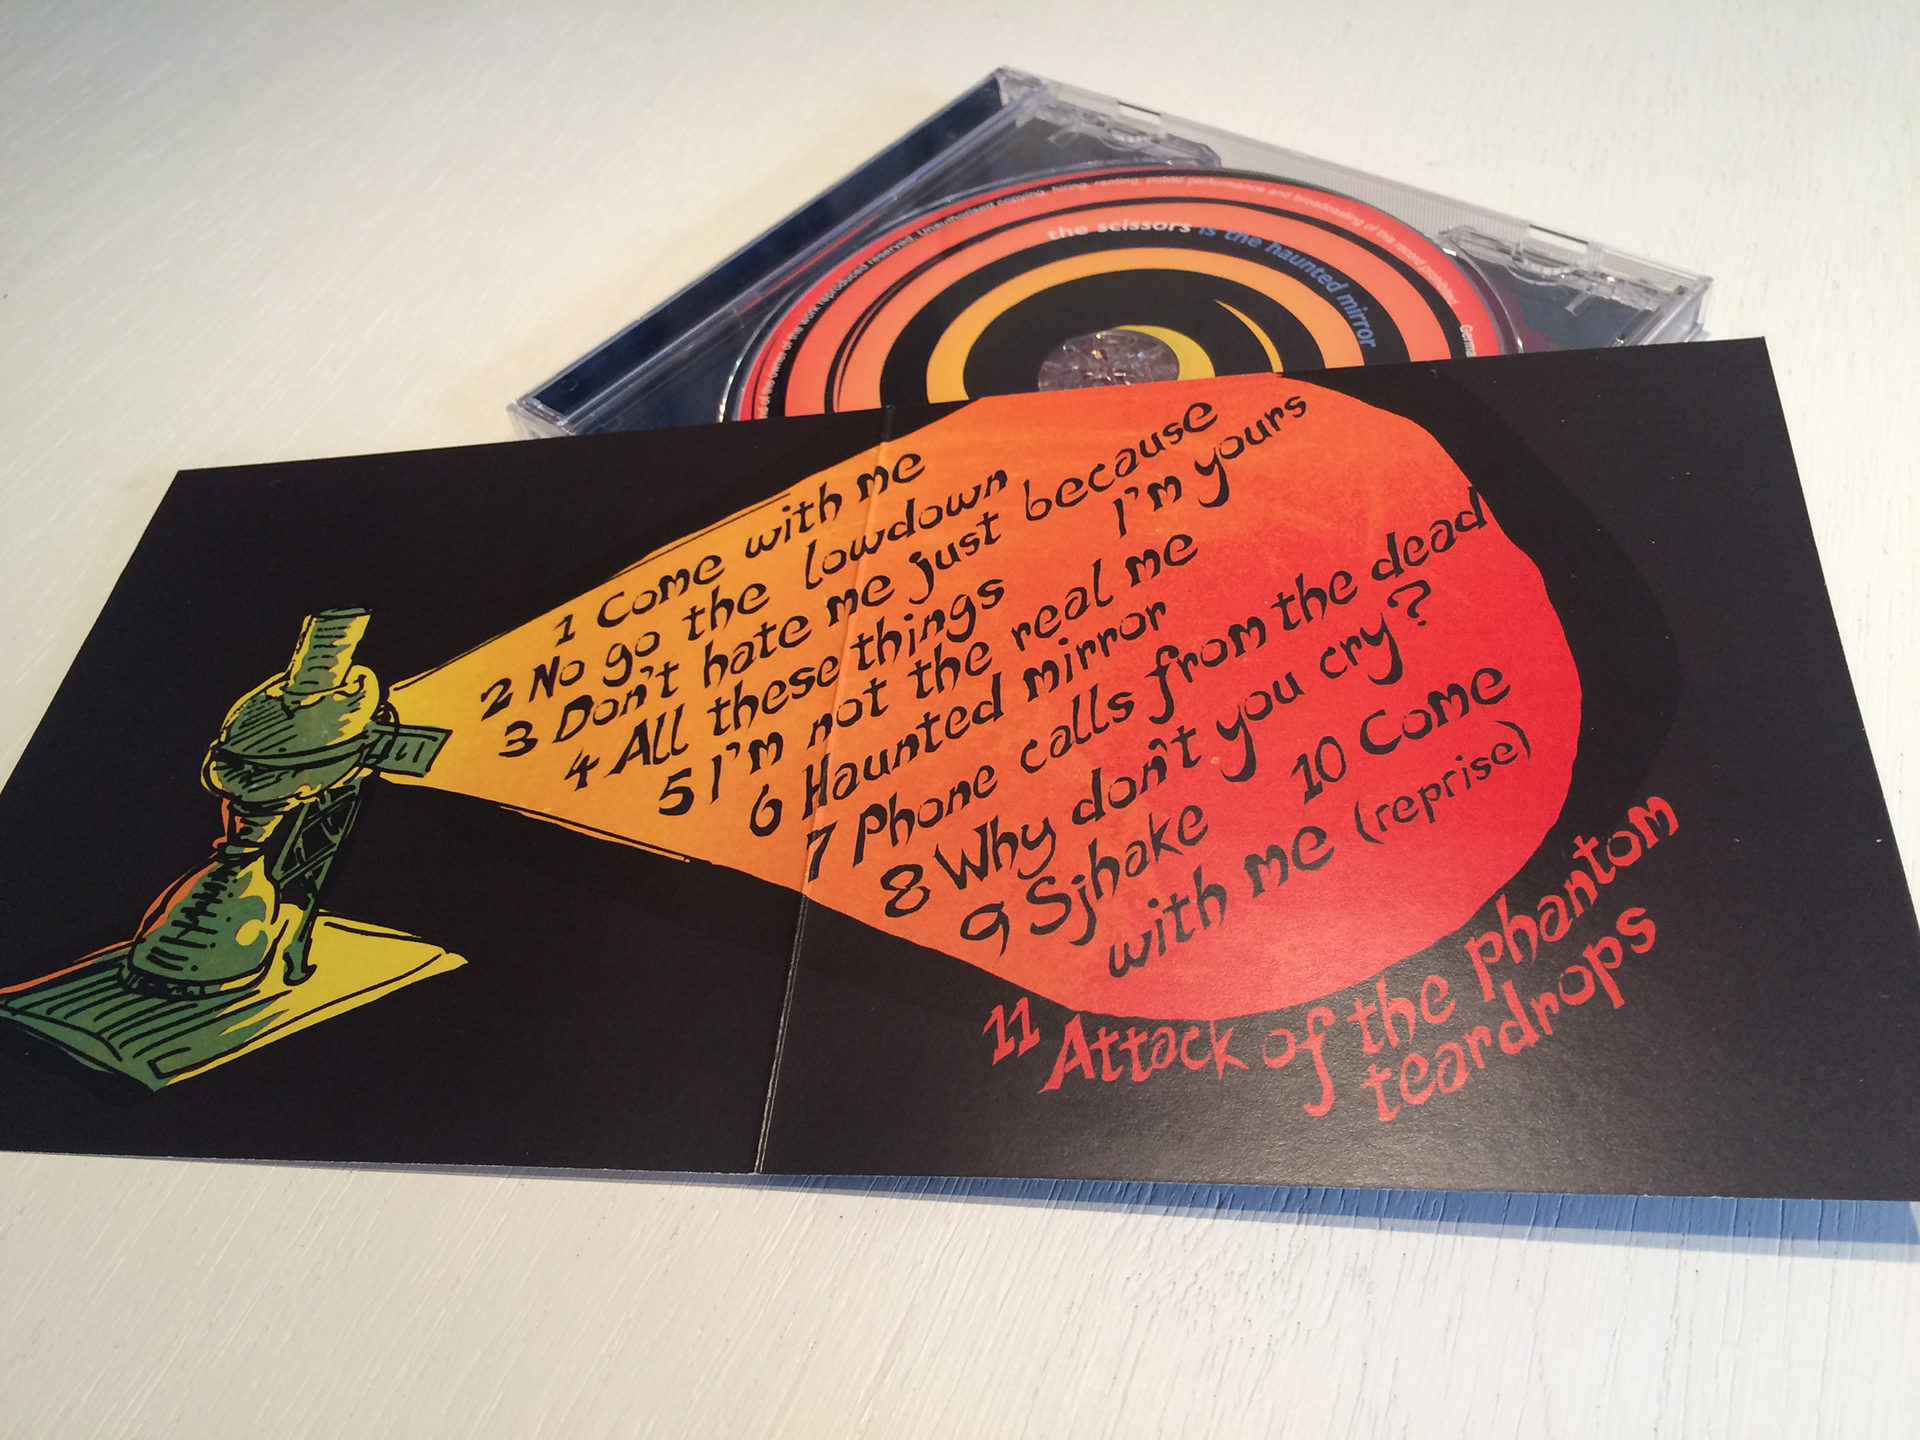 nd of the owner of the work reproduced reserved. Unauthorised copying, hiring, renting, public performance and broadcasting of this record prohibited.
Germa
the scissors is the haunted mirror
1 Come with me
2 No go the lowdown
3 Don't hate me just because
I'm yours
4 All these things
5 I'm not the real me
6 Haunted mirror
7 Phone calls from the dead
8 Why don't you cry?
9 Sjhake
10 Come
with me (reprise)
11 Attack of the phantom
teardrops